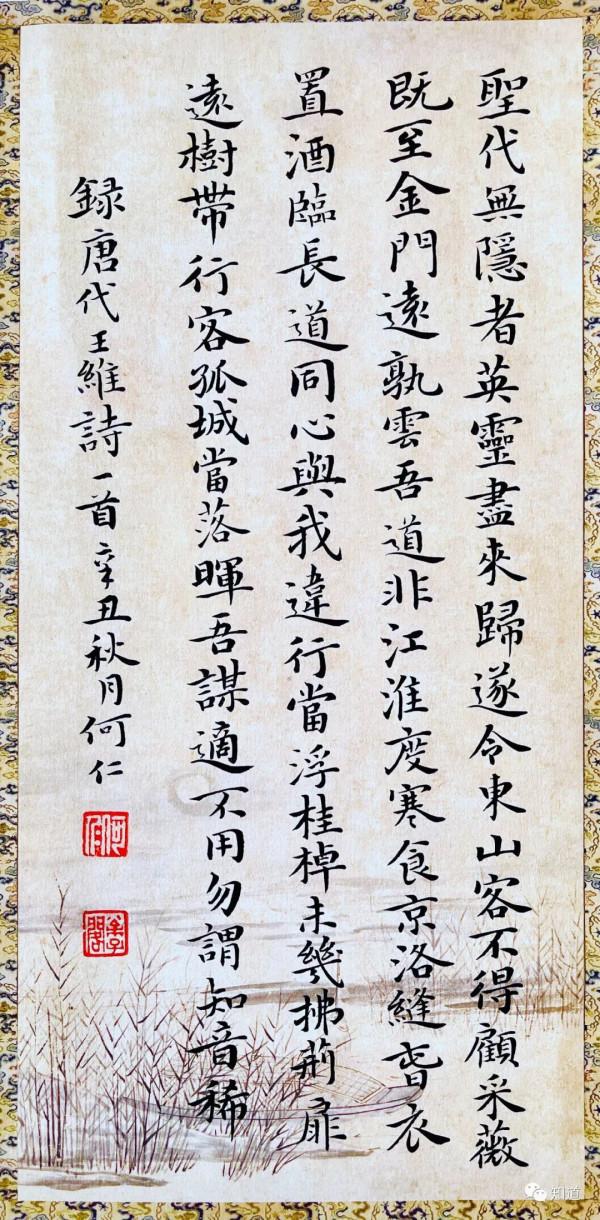 聖代無隱者英靈盡來歸遂令東山客不得顧采薇
既至金門遠孰雲吾道非江淮度寒食京洛縫旾衣
置酒臨長道同心與我違行當浮桂棹未幾拂荊扉
遠樹帶行客孤城當落暉吾謀適不用勿謂知音稀
録唐代王維詩一首辛丑秋月何仁
知道